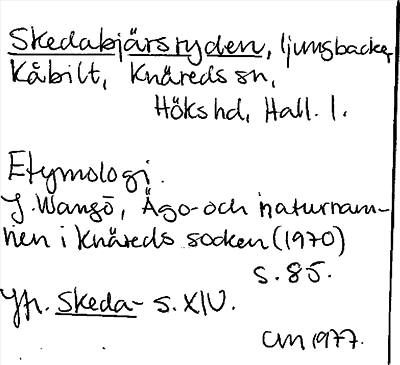 Skedabjärsryden, ljungbacke,
Kåbilt, Knäreds sn,
Höks hd, Hall. l.
Etymologi.
J. Wangö, Ägo- och naturnam-
nen i Knäreds socken (1970)
s. 85.
Jfr. Skeda- s. XIV.
CM 1977.